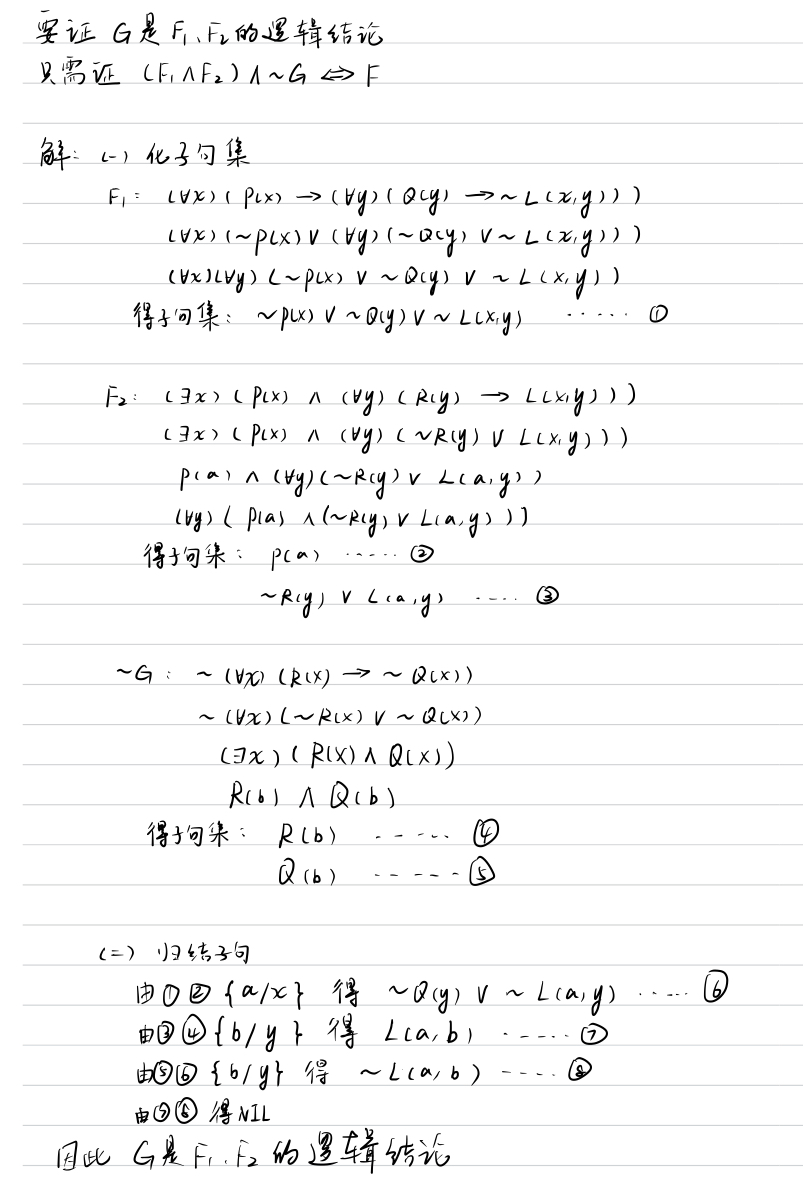 要证 G是 F₁、F₂的逻辑结论
只需证 (F₁∧F₂)∧~G ⇔ F
解: (一) 化子句集
F₁: (∀x)(P(x)→(∀y)(Q(y)→~L(x,y)))
(∀x)(~P(x)∨(∀y)(~Q(y)∨~L(x,y)))
(∀x)(∀y)(~P(x)∨~Q(y)∨~L(x,y))
得子句集: ~P(x)∨~Q(y)∨~L(x,y) ······ ①
F₂: (∃x)(P(x)∧(∀y)(R(y)→L(x,y)))
(∃x)(P(x)∧(∀y)(~R(y)∨L(x,y)))
P(a)∧(∀y)(~R(y)∨L(a,y))
(∀y)(P(a)∧(~R(y)∨L(a,y))]
得子句集: P(a) ······ ②
~R(y)∨L(a,y) ····· ③
~G: ~(∀x)(R(x)→~Q(x))
~(∀x)(~R(x)∨~Q(x))
(∃x)(R(x)∧Q(x))
R(b)∧Q(b)
得子句集: R(b) ······ ④
Q(b) ······ ⑤
(二) 归结子句
由①②{a/x} 得 ~Q(y)∨~L(a,y) ····· ⑥
由③④{b/y} 得 L(a,b) ······ ⑦
由⑤⑥{b/y} 得 ~L(a,b) ····· ⑧
由⑦⑧ 得NIL
因此 G是F₁、F₂的逻辑结论